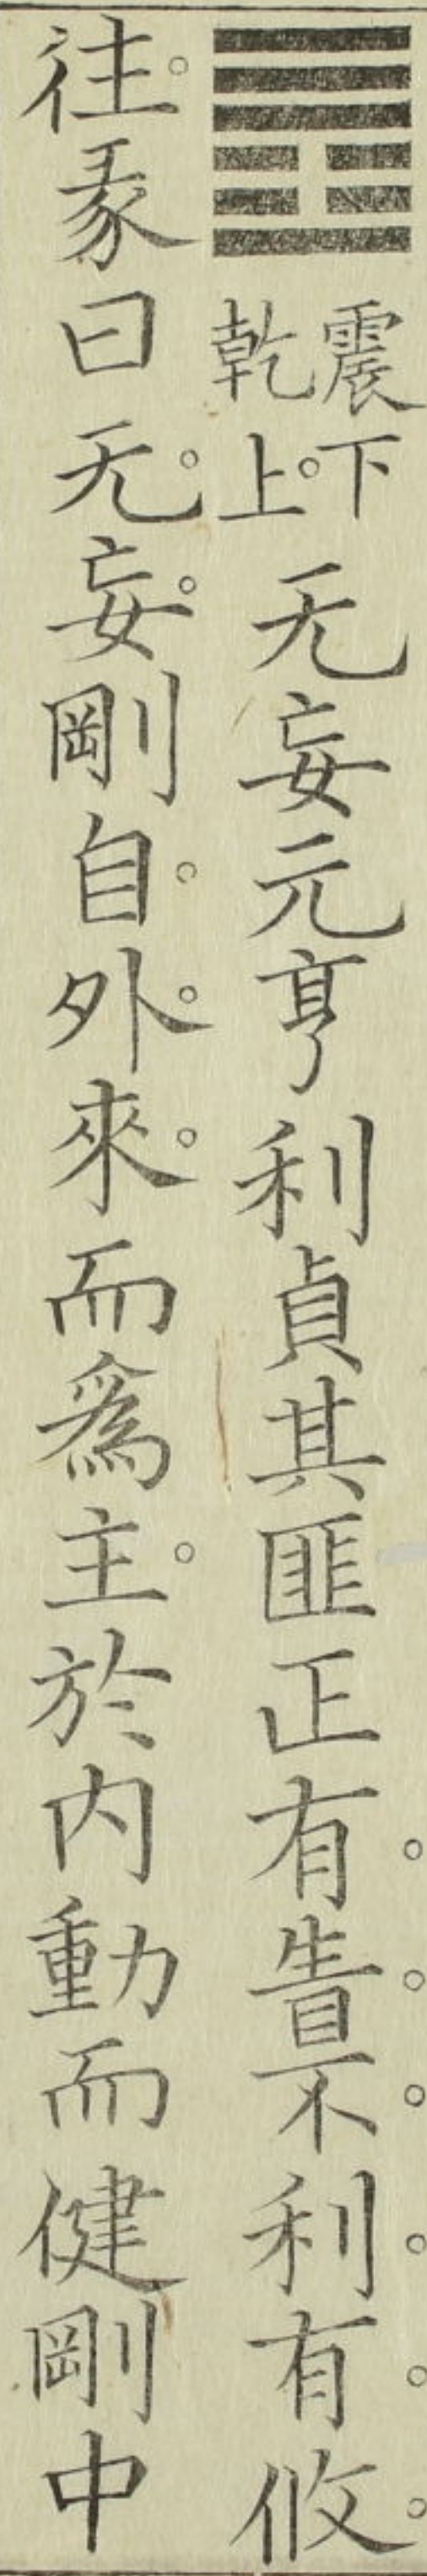 震下
乾上
无妄元亨利貞其匪正有眚不利有攸
往彖曰无妄剛自外來而爲主於内動而健剛中